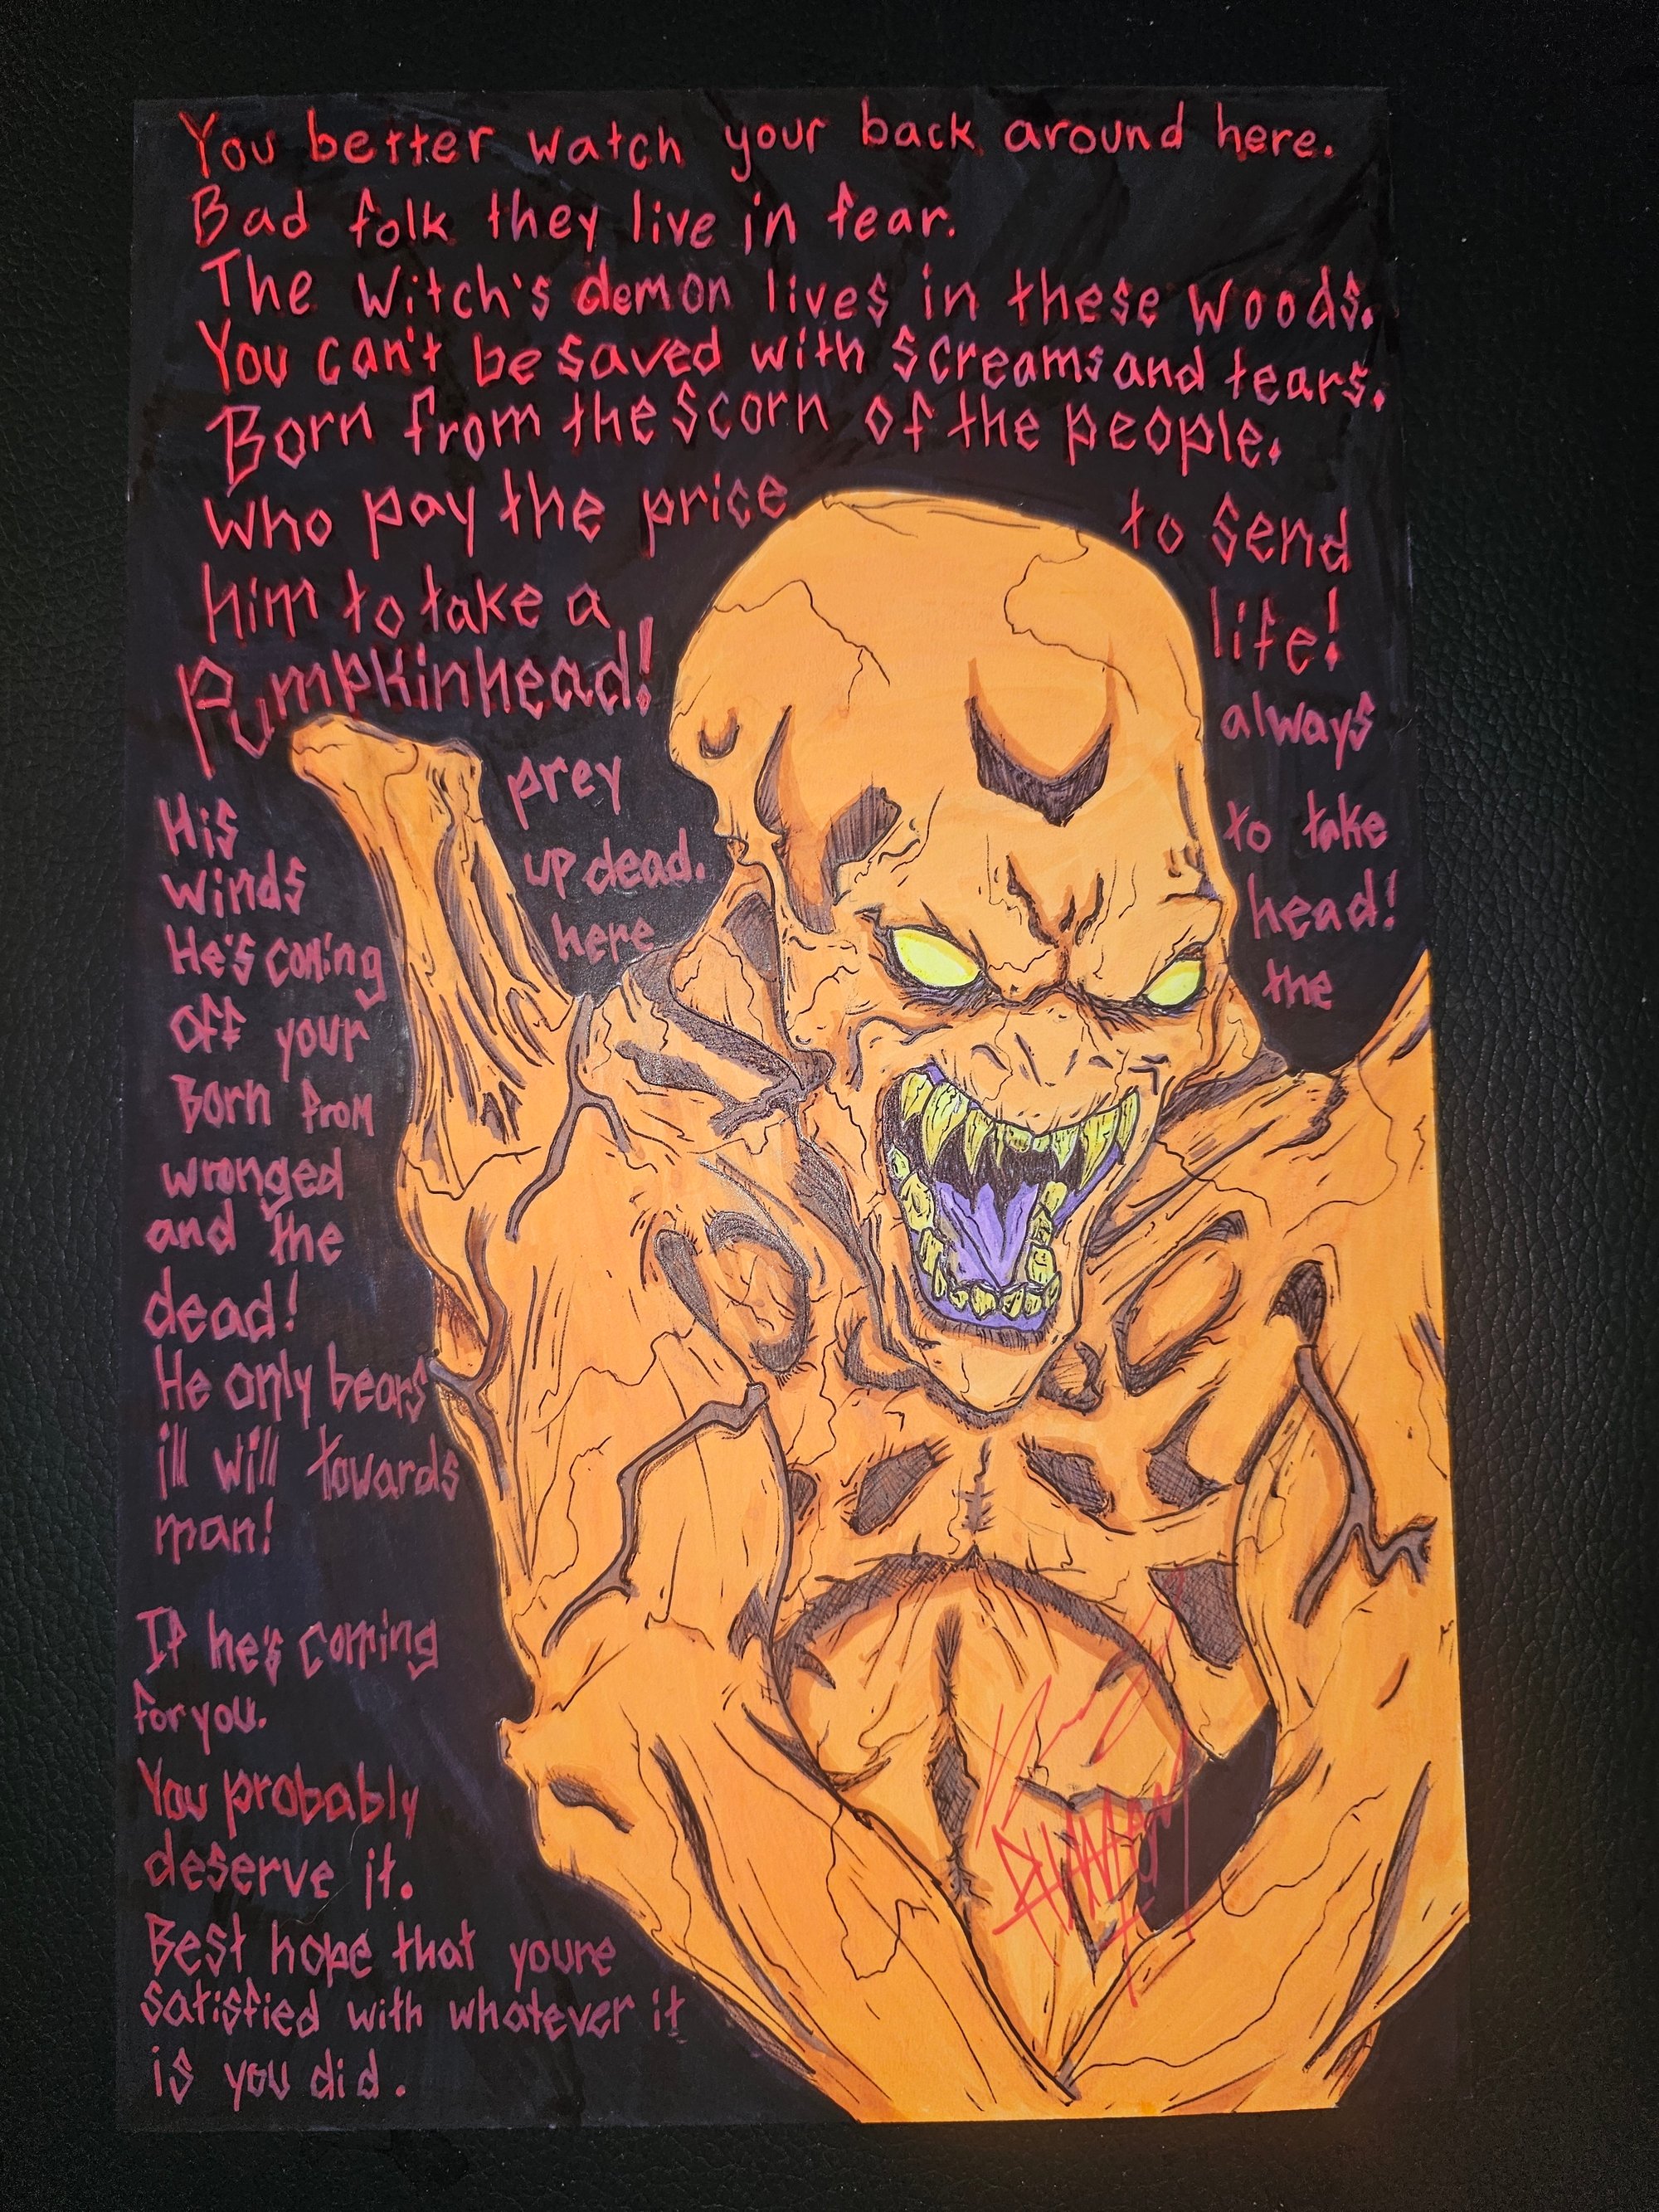 You better watch your back around here.
Bad folk they live in fear.
The Witch's demon lives in these woods.
You can't be saved with screams and tears.
Born from the scorn of the people.
who pay the price to send
him to take a life!
Pumpkinhead!
His prey always
winds up dead.
He's coming here to take
off your head!
Born from the
wronged
and the
dead!
He only bears
ill will towards
man!
If he's coming
for you.
You probably
deserve it.
Best hope that youre
satisfied with whatever it
is you did.